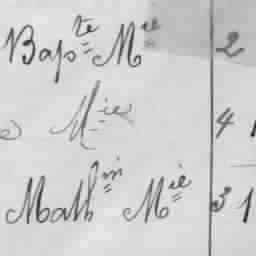 Bapte Mie 2
Mie 4 1
Mathin Mie 3 1